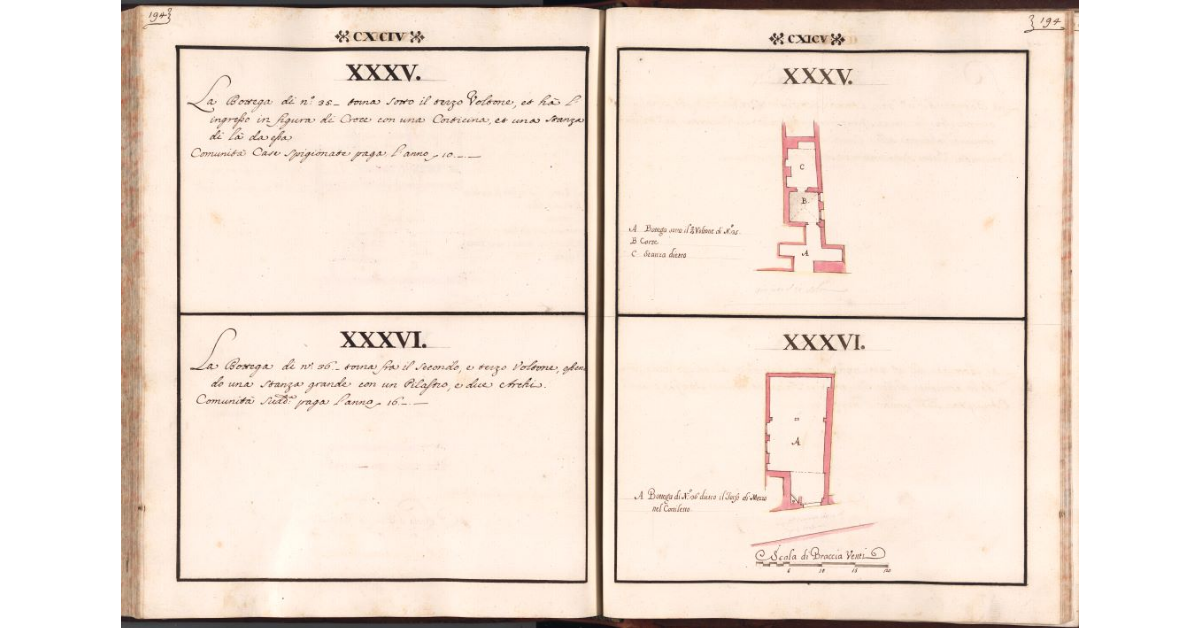 194
CXCIV
XXXV.
La Bottega di n.º 35 torna sotto il terzo Voltone, et hà l'
ingresso in figura di Croce con una Corticina, et una Stanza
di là da essa
Comunità Case spigionate paga l'anno 10
XXXVI.
La Bottega di n.º 36 torna frà il secondo, e terzo Voltone, essen
do una Stanza grande con un Pilastro, e due Archi.
Comunità Sudd.ª paga l'anno 16
194
CXICV
XXXV.
C
B
A
A Bottega sotto il Voltone di N.º 35
B Corte
C Stanza dietro
XXXVI.
A
A Bottega di N.º 36 dietro il
nel Corsletto
Scala di Braccia Venti
5 10 15 20